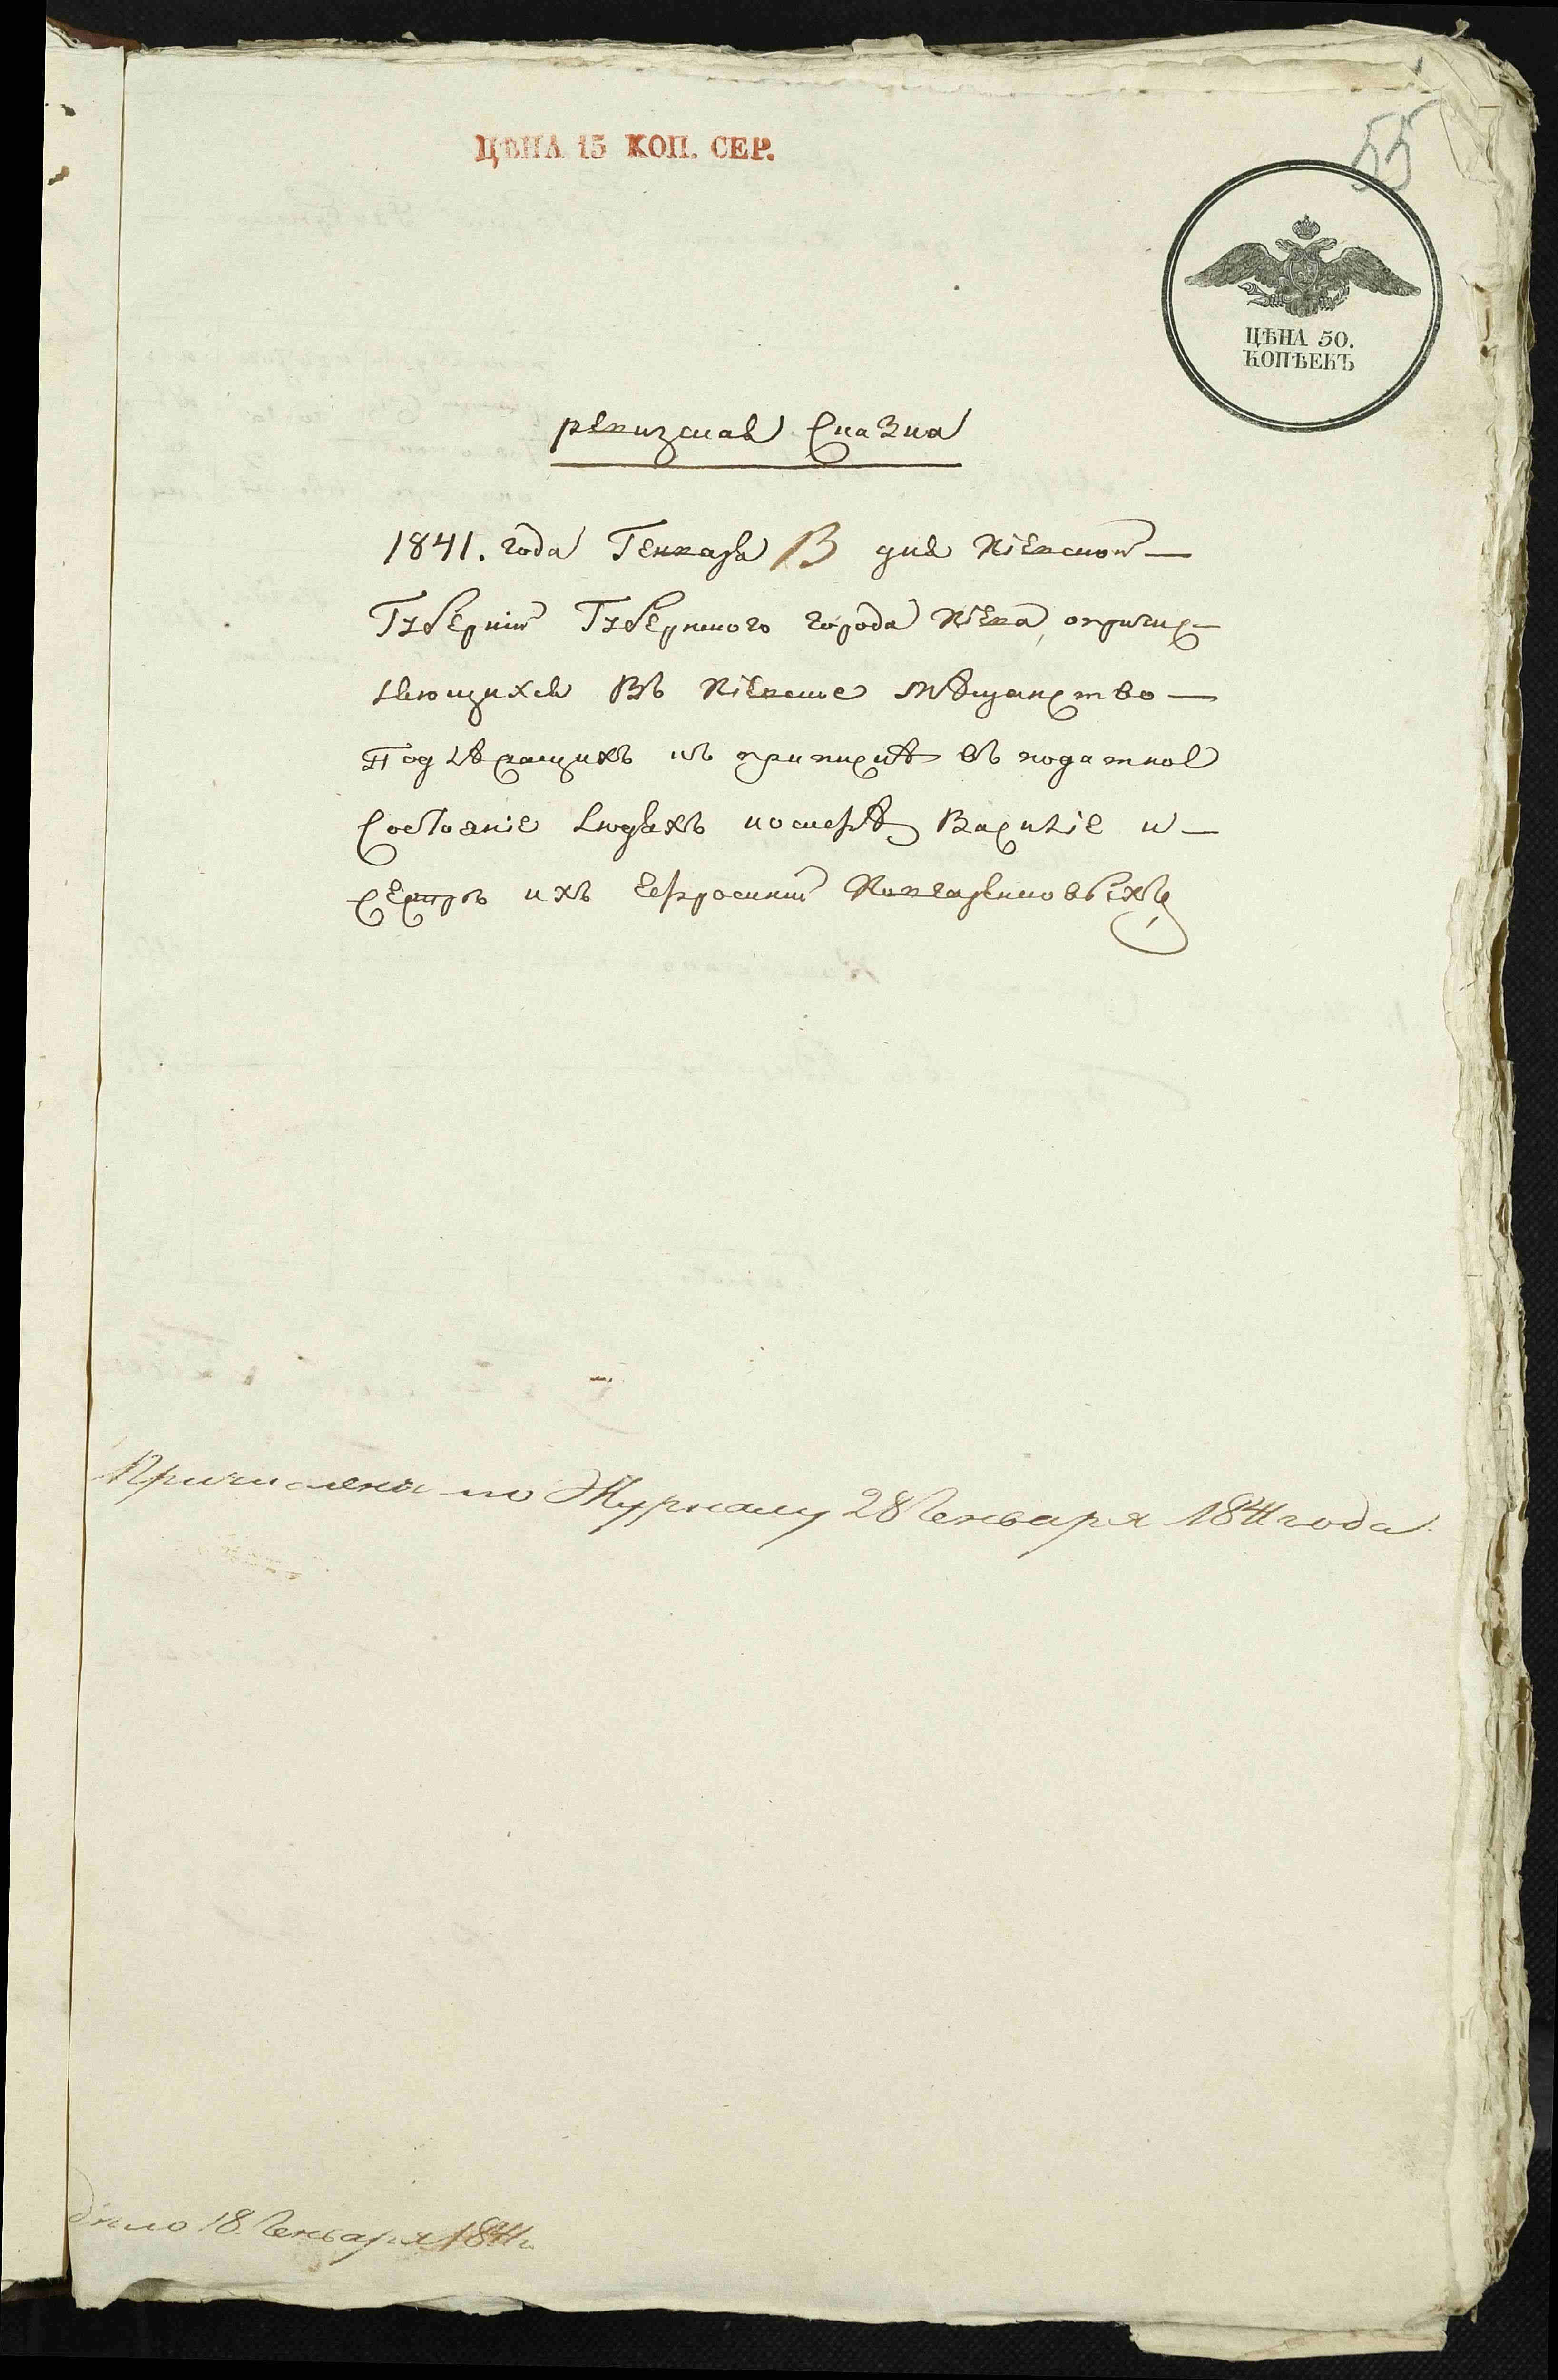 ЦѢНА 15 КОП. СЕР.
55
ЦѢНА 50.
КОПѢЕКЪ
ревизская Сказка
1841. года Генваря 13 дня Кіевской
Губерніи Губернского города Кіева, о причис-
ляющихся Въ Кіевское мѣщанство
Подлѣжащихъ къ припискѣ въ податное
Состояніе людяхъ Василіе и
Сестрѣ ихъ Ефросиніи
Причислены по Журналу 28 Генваря 1841 года
18. Генваря 1841 г.